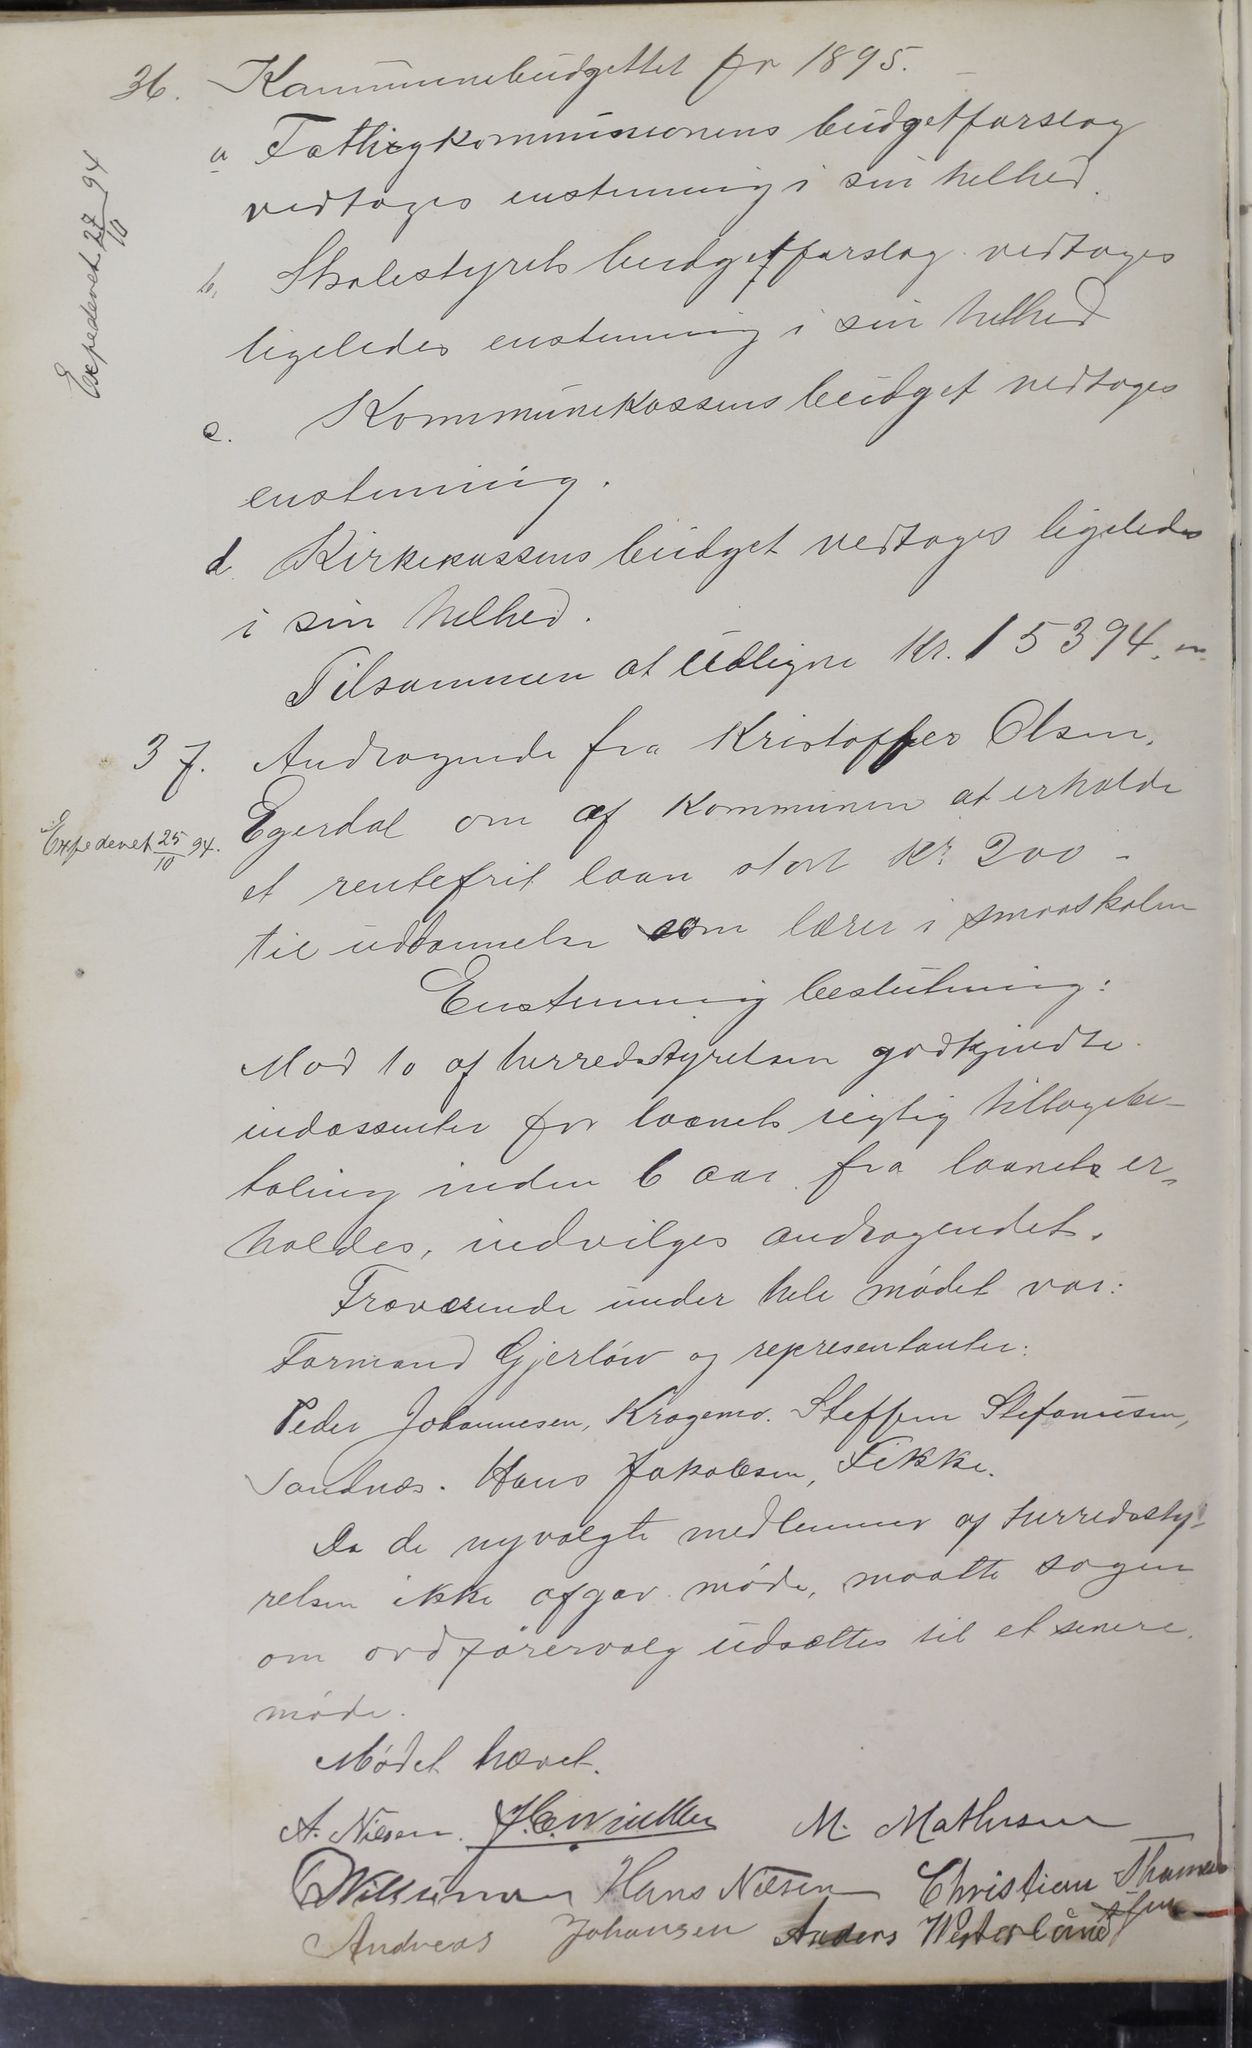 36. Kammunebudgettet for 1895.
a Fattigkommissionens budgetforslag
vedtoges enstemmig i sin helhed.
Expederet 27/10 94
b. Skolestyrets budgetforslag vedtoges
ligeledes enstemmig i sin helhed
c. Kommunekassens budget vedtoges
enstemmig.
d Kirkekassens budget vedtoges ligeledes
i sin helhed.
Tilsammen at udligne Kr. 15394.
37. Andragende fra Kristoffer Olsen,
Egerdal om af kommunen at erholde
Expederet 25/10 94.
et rentefrit laan stort Kr. 200 -
til uddannelse som lærer i smaaskolen
Enstemmig beslutning:
Mod to af herredsstyrelsen godkjendte
indossenter for laanets rigtig tilbagebe-
taling inden 6 aar fra laanets er-
holdes, indvilges andragendet.
Fraværende under hele mødet var:
Formand Gjerløw og representanter:
Peder Johannesen, Kragemo. Steffen Stefanusen,
Sandnæs. Hans Jakobsen, Fikke.
Da de nyvalgte medlemmer af herredssty-
relsen ikke afgav møde, maatte sagen
om ordførervalg udsættes til et senere
møde.
Mødet hævet.
A. Nilsen. J. C. Winther M. Mathisen
Hans Nilsen Christian Thomas
sen
Andreas Johansen Anders Westerlund